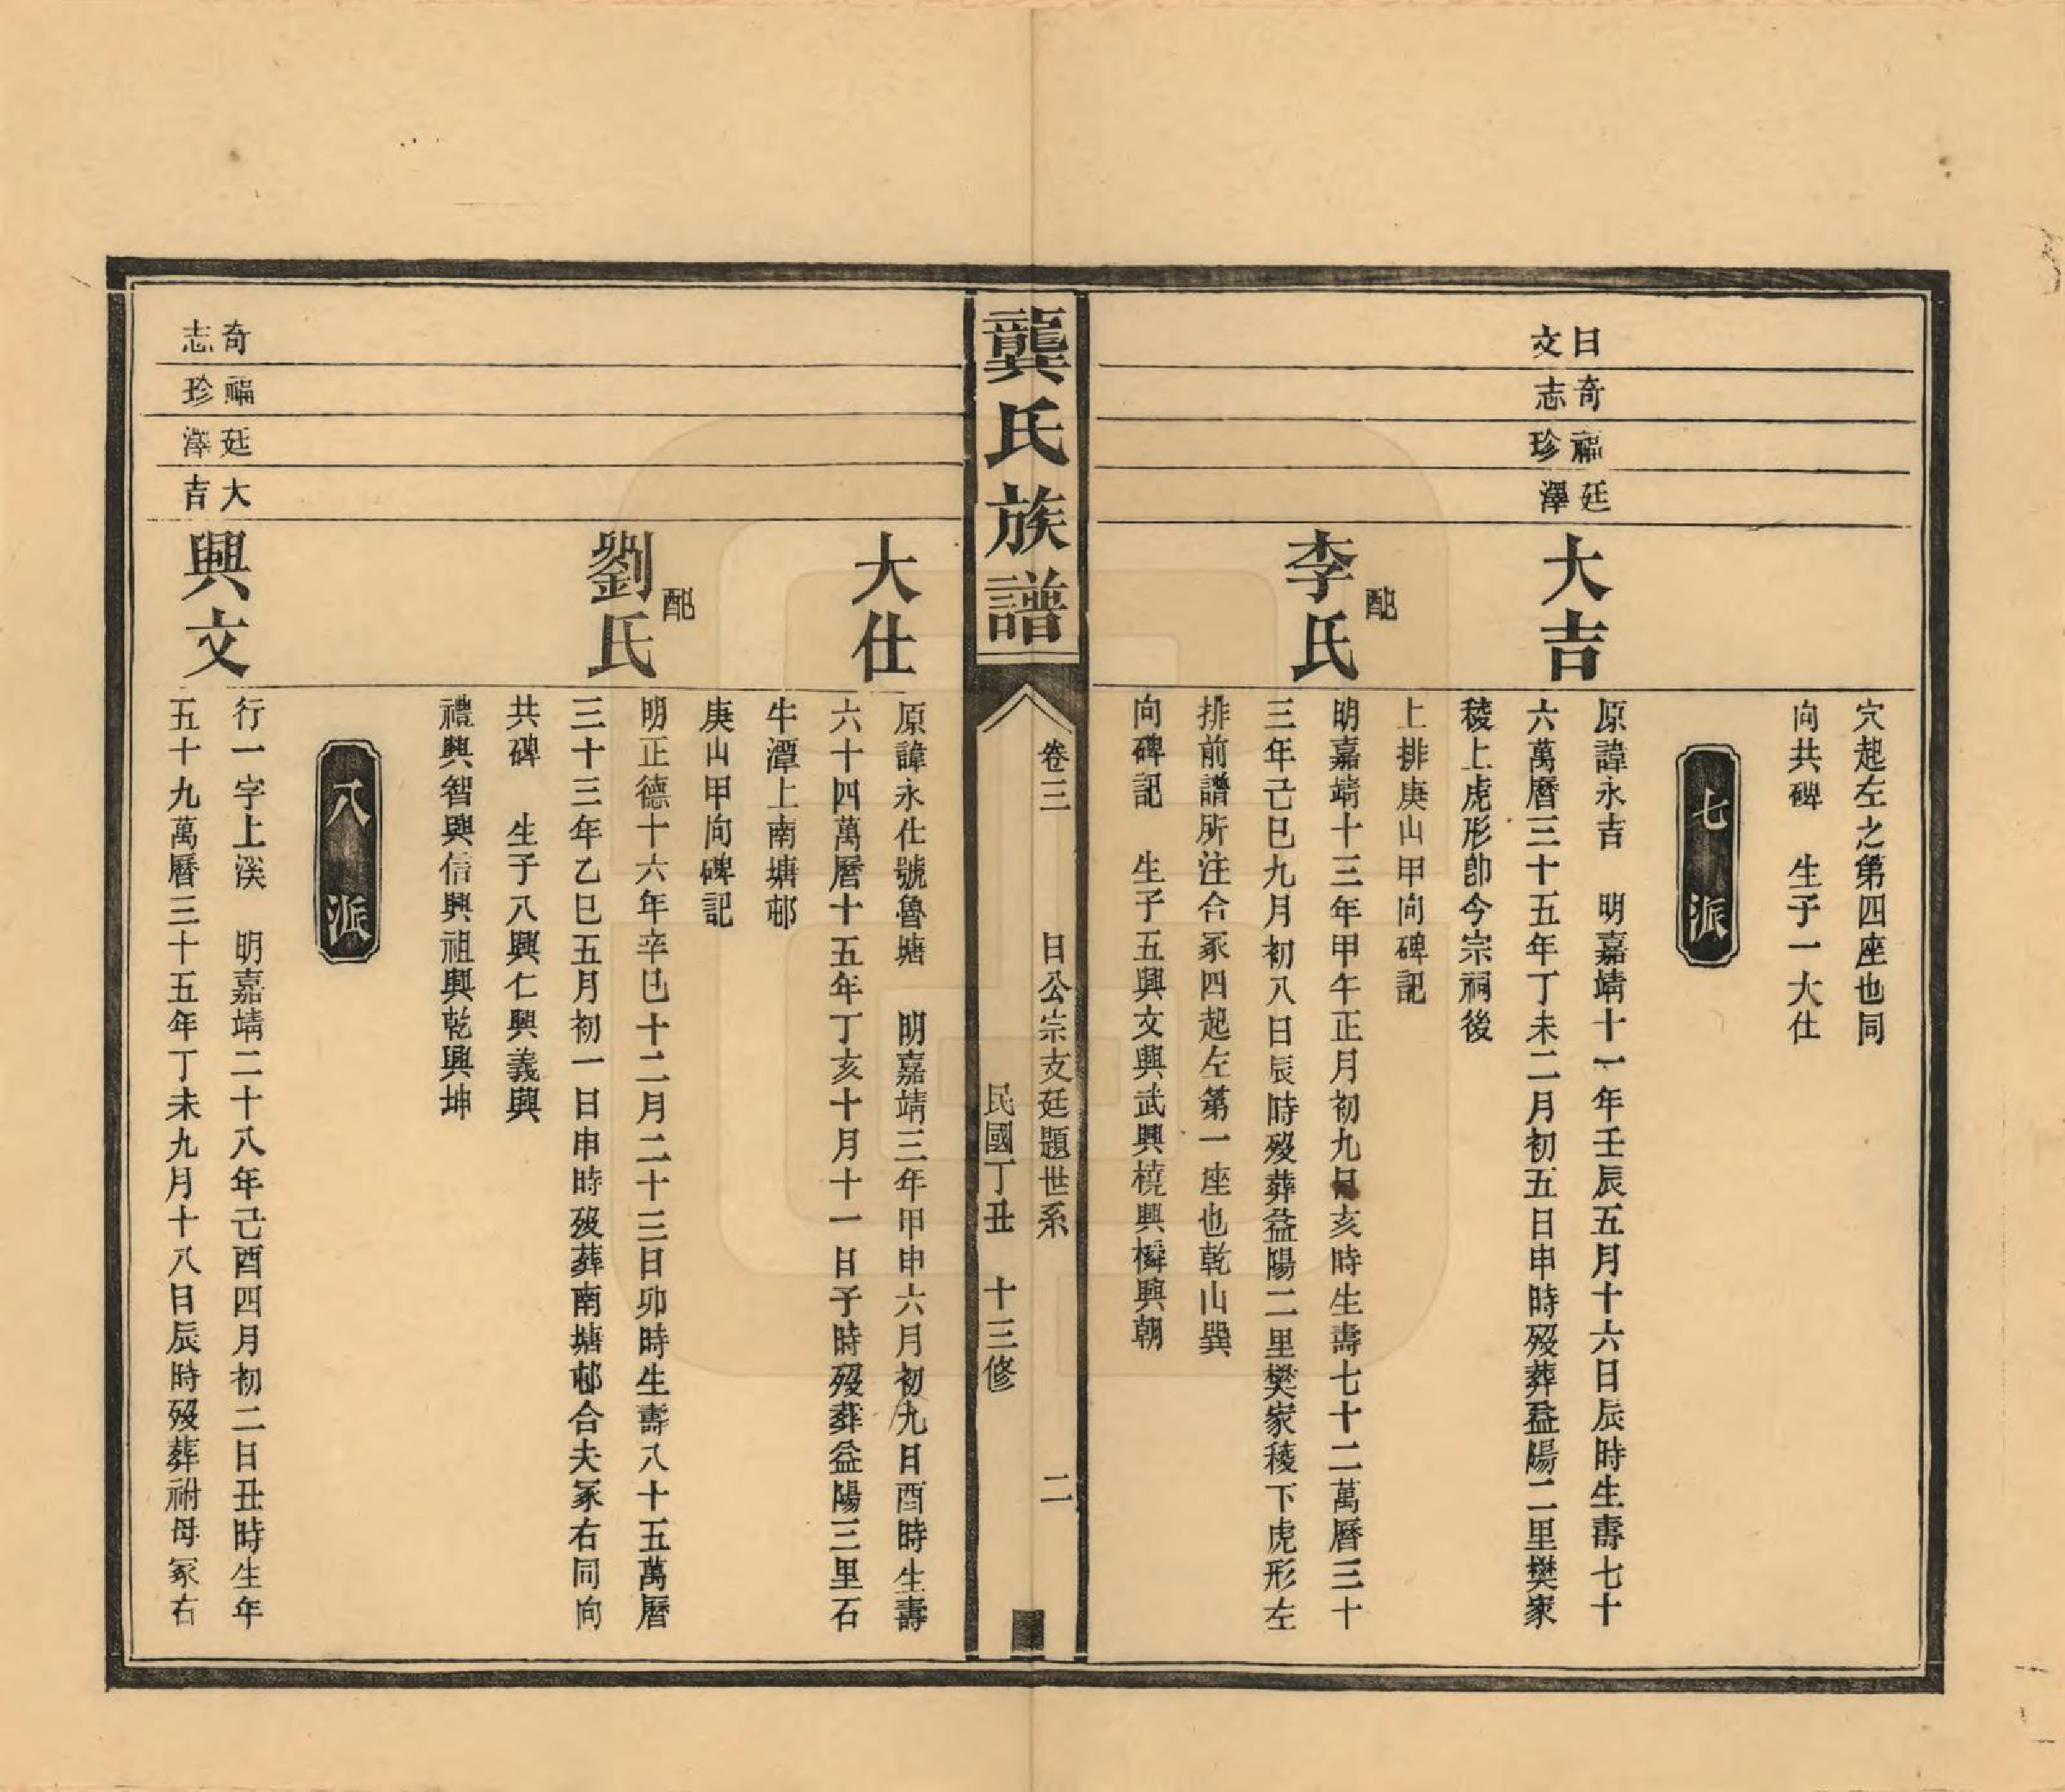 穴起左之第四座也同
向共碑　生子一大仕
七派
日文
奇志
福珍
廷澤
大吉
原諱永吉　明嘉靖十一年壬辰五月十六日辰時生壽七十
六萬曆三十五年丁未二月初五日申時歿葬益陽二里樊家
稜上虎形卽今宗祠後
上排庚山甲向碑記
配
李氏
明嘉靖十三年甲午正月初九日亥時生壽七十二萬曆三十
三年己巳九月初八日辰時歿葬益陽二里樊家稜下虎形左
排前譜所注合冢四起左第一座也乾山巽
向碑記　生子五興文興武興橈興橉興朝
龔氏族譜
卷三　日公宗支廷題世系　二
民國丁丑　十三修
大仕
原諱永仕號魯塘　明嘉靖三年甲申六月初九日酉時生壽
六十四萬曆十五年丁亥十月十一日子時歿葬益陽三里石
牛潭上南塘邨
庚山甲向碑記
配
劉氏
明正德十六年辛巳十二月二十三日卯時生壽八十五萬曆
三十三年乙巳五月初一日申時歿葬南塘邨合夫冢右同向
共碑　生子八興仁興義興
禮興智興信興祖興乾興坤
八派
奇志
福珍
廷澤
大吉
興文
行一字上溪　明嘉靖二十八年己酉四月初二日丑時生年
五十九萬曆三十五年丁未九月十八日辰時歿葬祔母冢右